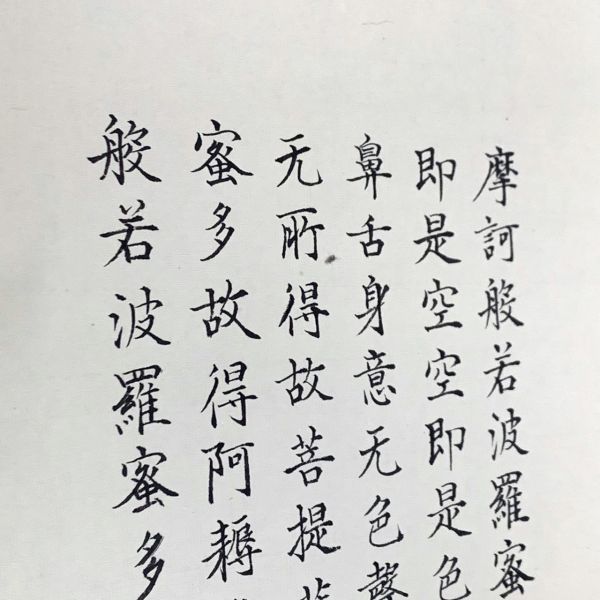 摩訶般若波羅蜜
即是空空即是色
鼻舌身意无色聲
无所得故菩提
蜜多故得阿耨
般若波羅蜜多